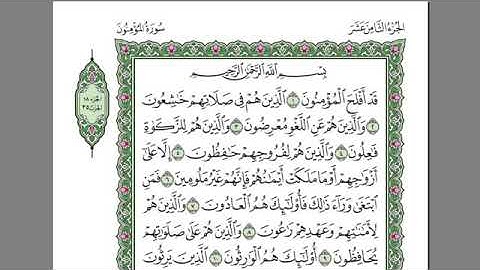 الجزء الثامن عشر
سورة المؤمنون
الجزء ١٨
الحزب ٣٥
بِسْمِ اللَّهِ الرَّحْمَٰنِ الرَّحِيمِ
قَدْ أَفْلَحَ الْمُؤْمِنُونَ ١ الَّذِينَ هُمْ فِي صَلَاتِهِمْ خَاشِعُونَ
٢ وَالَّذِينَ هُمْ عَنِ اللَّغْوِ مُعْرِضُونَ ٣ وَالَّذِينَ هُمْ لِلزَّكَوٰةِ
فَاعِلُونَ ٤ وَالَّذِينَ هُمْ لِفُرُوجِهِمْ حَافِظُونَ ٥ إِلَّا عَلَىٰ
أَزْوَاجِهِمْ أَوْ مَا مَلَكَتْ أَيْمَانُهُمْ فَإِنَّهُمْ غَيْرُ مَلُومِينَ ٦ فَمَنِ
ابْتَغَىٰ وَرَاءَ ذَٰلِكَ فَأُولَٰئِكَ هُمُ الْعَادُونَ ٧ وَالَّذِينَ هُمْ
لِأَمَانَاتِهِمْ وَعَهْدِهِمْ رَاعُونَ ٨ وَالَّذِينَ هُمْ عَلَىٰ صَلَوَاتِهِمْ
يُحَافِظُونَ ٩ أُولَٰئِكَ هُمُ الْوَارِثُونَ ١٠ الَّذِينَ يَرِثُونَ